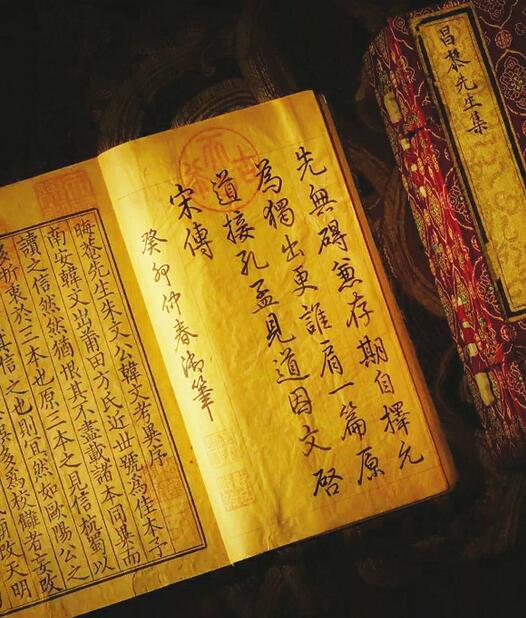 昌黎先生集
先無碍兼存期自擇允
為獨出更誰肩一篇原
道接孔孟見道因文啓
宋傳
癸卯仲春御筆
晦菴先生朱文公韓文考異序
南安韓文出莆田方氏近世號為佳本予
讀之信然然猶恨其不盡載諸本同異而
多折衷於三本也原三本之見信杭蜀以
其信之也則宜然如歐陽公之
多為校讎者妄改